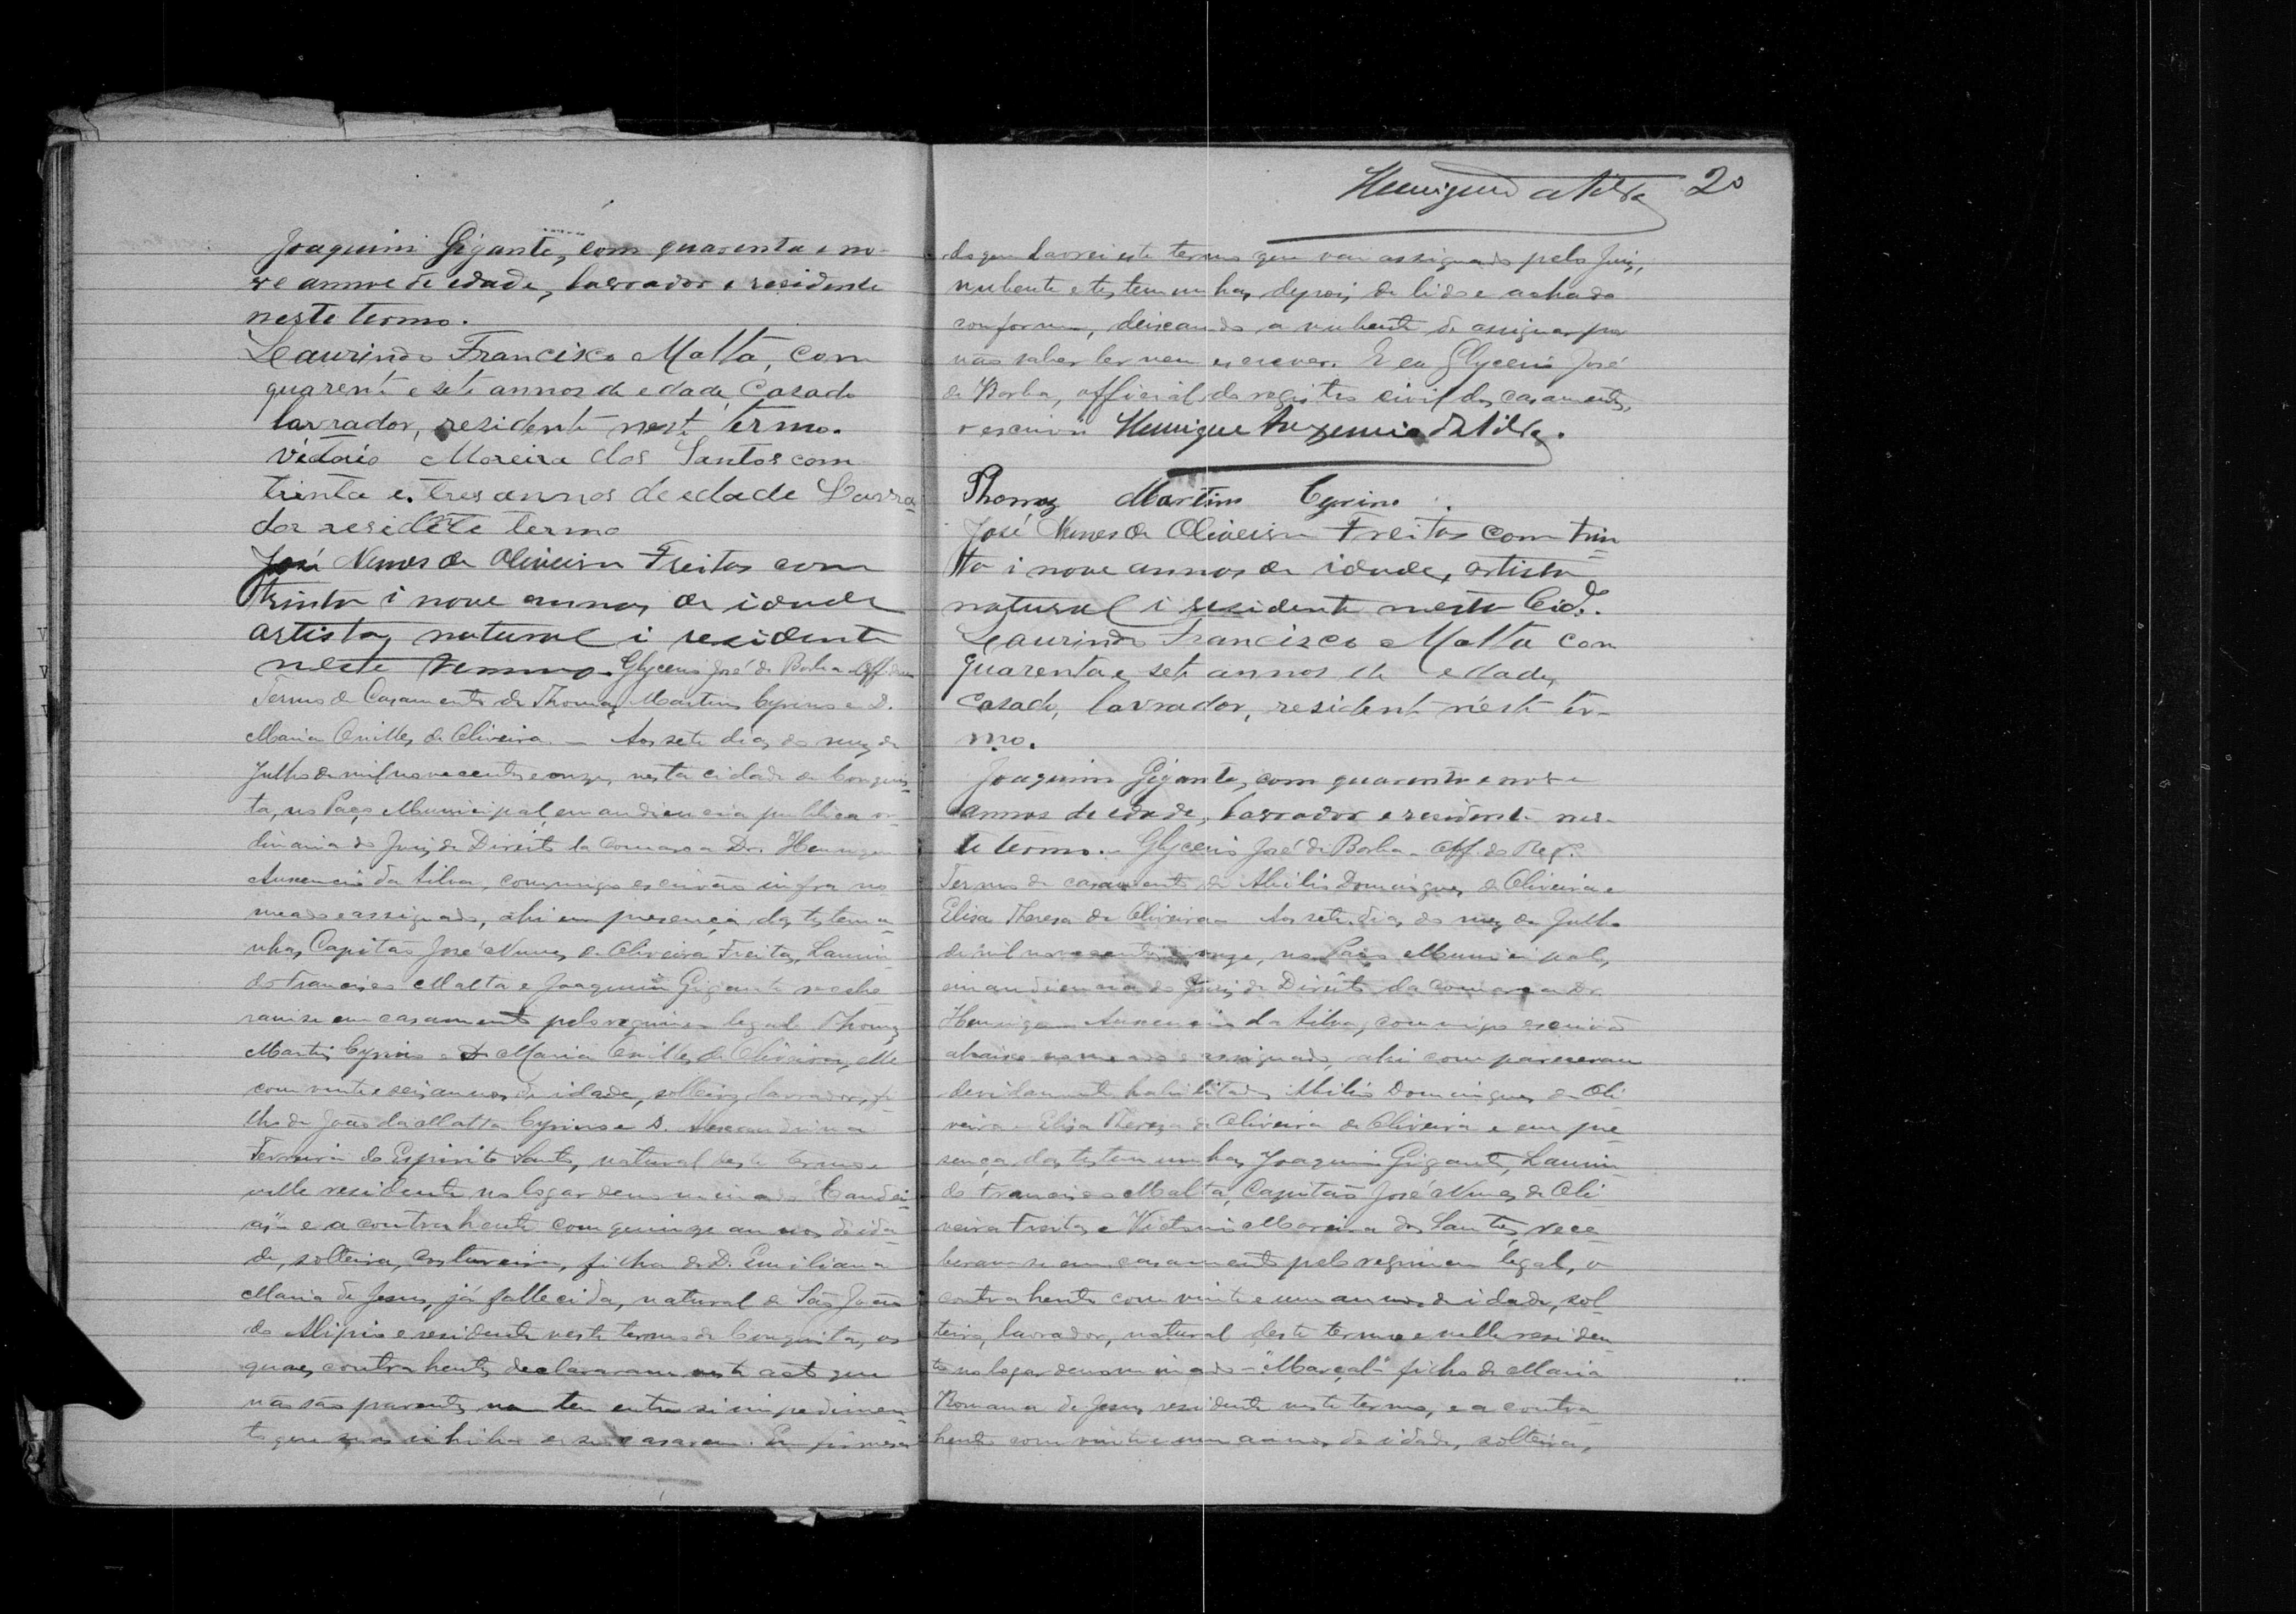 Joaquim Gigante, com quarenta e no-
ve annos de edade, lavrador e residente
neste termo.
Laurindo Francisco Malta, com
quarent e sete annos de edade, Casado
lavrador, residente nest termo.
Vitorio Moreira dos Santos com
trinta e tres annos de edade Lavra-
dor neste termo
José Nunes de Oliveira Freitas com
trinta i nove annos de idade
artista, natural i residente
neste termo. Glycerio José de Borba Off.
Termo de Casamento de Thomaz Martins Cyrino e D.
Maria de Oliveira. — Aos sete dias do mez de
Julho de mil novecentos e onze, nesta cidade de Conquis-
ta, no Paço Municipal, em audiencia publica or-
dinaria do Juiz de Direito da Comarca Dr. Henrique
Auxencio da Silva, commigo escrivão infra no-
meado e assignado, ahi em presença das testemu-
nhas, Capitão José Nunes de Oliveira Freitas, Laurin-
do Francisco Malta e Joaquim Gigante recebe-
ram-se em casamento pelo regimen legal Thomaz
Martins Cyrino e D. Maria de Oliveira, elle
com vinte e seis annos de idade, solteiro, lavrador, fi-
lho de João da Matta Cyrino e D.
Ferreira do Espirito Santo, natural deste termo e
nelle residente no logar denominado "Candei-
as" e a contrahente com quinze annos de ida-
de, solteira, costureira, filha de D. Emiliana
Maria de Jesus, já fallecida, natural de São João
do Alipio e residente neste termo de Conquista, os
quaes contrahentes declararam neste acto que
não são parentes nem tem entre si impedimen-
to que os inhiba de se casarem. Em firmeza
Henrique da Silva 20
do que lavrei este termo que vae assignado pelo Juiz,
nubente e testemunhas, depois de lido e achado
conforme, deixando a nubente de assignar por
não saber ler nem escrever. E eu Glycerio José
de Borba, official do registro civil dos casamentos,
o escrivi Henrique Auxencio da Silva.
Thomaz Martins Cyrino.
José Nunes de Oliveira Freitas com trin-
ta i nove annos de idade, artista
natural i residente nesta Cide.
Laurindo Francisco Malta com
quarenta e sete annos de edade,
Casado, lavrador, resident nést ter-
mo.
Joaquim Gigante, com quarenta e nove
annos de edade, lavrador e residente nes-
te termo. Glycerio José de Borba. Off. do Reg.
Termo de casamento de Abilio Domingues de Oliveira e
Elisa Thereza de Oliveira. Aos sete dias do mez de Julho
de mil novecentos e onze, no Paço Municipal,
em audiencia do Juiz de Direito da comarca Dr.
Henrique Auxencio da Silva, commigo escrivão
abaixo nomeado e assignado, ahi compareceram
devidamente habilitados Abilio Domingues de Oli-
veira e Elisa Thereza de Oliveira de Oliveira e em pre-
sença das testemunhas, Joaquim Gigante, Laurin-
do Francisco Malta, Capitão José Nunes de Oli-
veira Freitas e Victorio Moreira dos Santos, rece-
beram-se em casamento pelo regimen legal, o
contrahente com vinte e um annos de idade, sol-
teiro, lavrador, natural deste termo e nelle residen-
te no logar denominado - "Marçal" - filho de Maria
Romana de Jesus, residente neste termo, e a contra-
hente com vinte e um annos de idade, solteira,